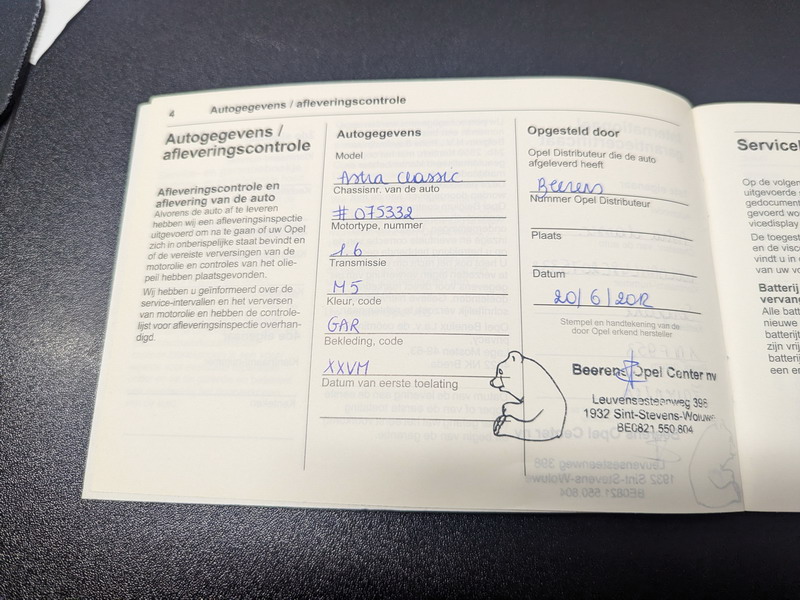 4
Autogegevens / afleveringscontrole
Autogegevens /
afleveringscontrole
Afleveringscontrole en
aflevering van de auto
Alvorens de auto af te leveren
hebben wij een afleveringsinspectie
uitgevoerd om na te gaan of uw Opel
zich in onberispelijke staat bevindt en
of de vereiste verversingen van de
motorolie en controles van het olie-
peil hebben plaatsgevonden.
Wij hebben u geïnformeerd over de
service-intervallen en het verversen
van motorolie en hebben de controle-
lijst voor afleveringsinspectie overhan-
digd.
Autogegevens
Model
Astra classic
Chassisnr. van de auto
# 075332
Motortype, nummer
1.6
Transmissie
M5
Kleur, code
GAR
Bekleding, code
XXVM
Datum van eerste toelating
Opgesteld door
Opel Distributeur die de auto
afgeleverd heeft
Beerens
Nummer Opel Distributeur
Plaats
Datum
20/6/2012
Stempel en handtekening van de
door Opel erkend hersteller
Beerens Opel Center nv
Leuvensesteenweg 398
1932 Sint-Stevens-Woluwe
BE0821 550 804
Op de volgen
uitgevoerde
gedocument
gevoerd wo
vicedisplay
De toegest
en de visc
vindt u in
van uw vo
Batterij
vervan
Alle batt
nieuwe
batterijt
zijn vrij
batterij
een er